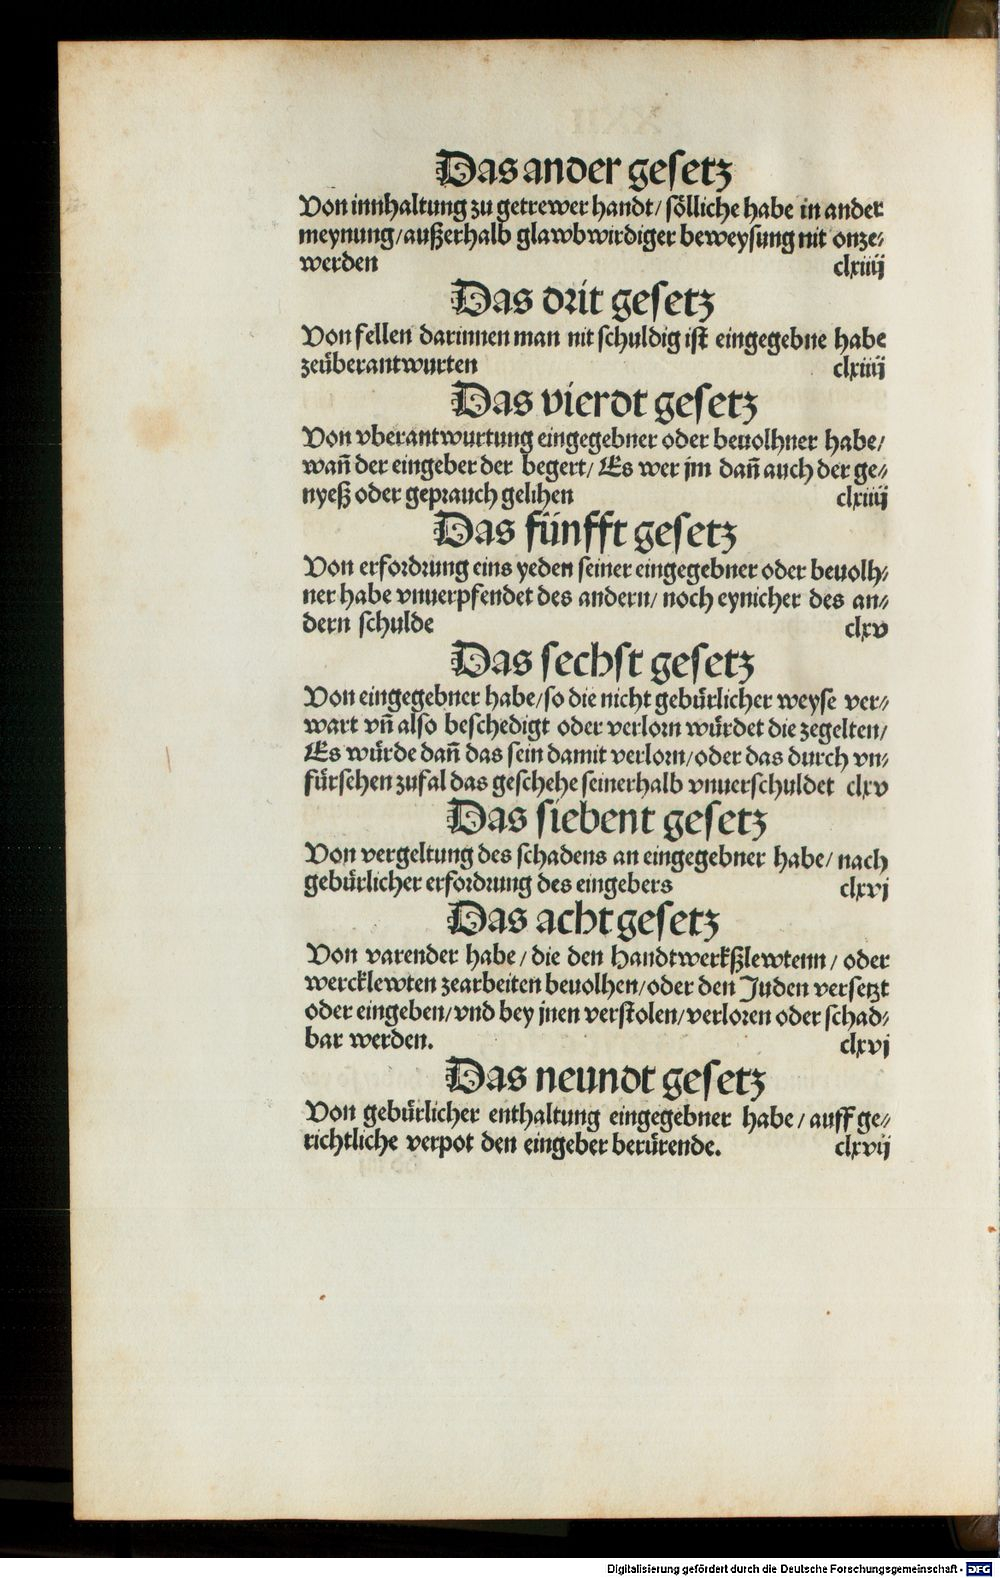 Das ander gesetz
Von innhaltung zu getrewer handt/ sölliche habe in ander
meynung/außerhalb glawbwirdiger beweysung nit onze⸗
werden clxiiij
Das drit gesetz
Von fellen darinnen man nit schuldig ist eingegebne habe
zeüberantwurten clxiiij
Das vierdt gesetz
Von vberantwurtung eingegebner oder beuolhner habe/
wan̄ der eingeber der begert/ Es wer jm dan̄ auch der ge⸗
nyeß oder geprauch gelihen clxiiij
Das fünfft gesetz
Von erfordrung eins yeden seiner eingegebner oder beuolh⸗
ner habe vnuerpfendet des andern/ noch eynicher des an⸗
dern schulde clxv
Das sechst gesetz
Von eingegebner habe/so die nicht gebürlicher weyse ver⸗
wart vn̄ also beschedigt oder verlorn würdet die zegelten/
Es würde dan̄ das sein damit verlorn/oder das durch vn⸗
fürsehen zufal das geschehe seinerhalb vnuerschuldet clxv
Das siebent gesetz
Von vergeltung des schadens an eingegebner habe/ nach
gebürlicher erfordrung des eingebers clxvj
Das acht gesetz
Von varender habe/ die den Handtwerkßlewtenn/ oder
wercklewten zearbeiten beuolhen/oder den Juden versetzt
oder eingeben/vnd bey jnen verstolen/verloren oder schad⸗
bar werden. clxvj
Das neundt gesetz
Von gebürlicher enthaltung eingegebner habe/ auff ge⸗
richtliche verpot den eingeber berürende. clxvij
Digitalisierung gefördert durch die Deutsche Forschungsgemeinschaft - DFG